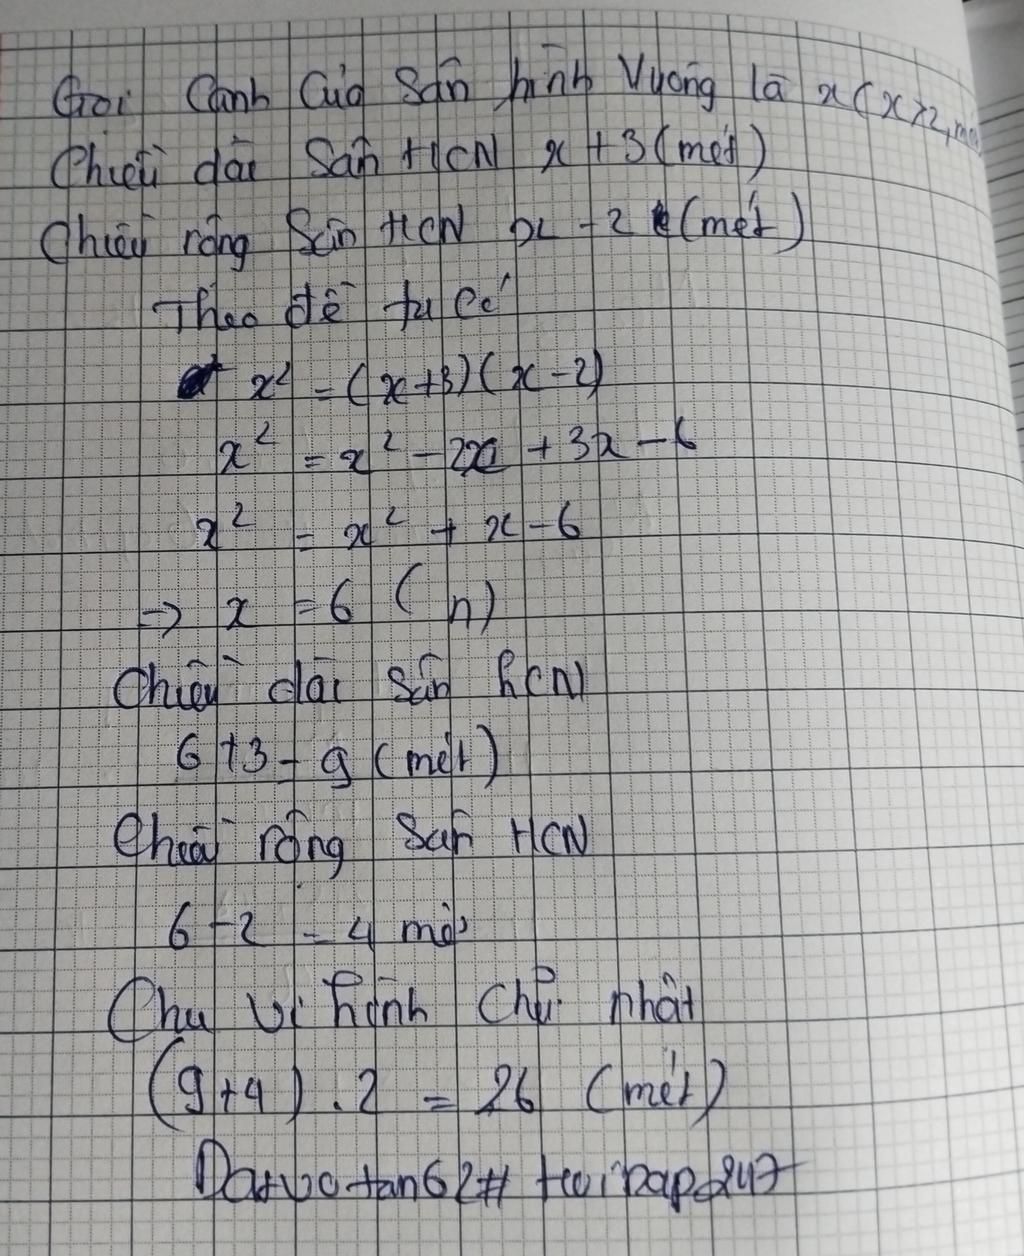 Gọi Cạnh Của Sân hình Vuông là x (x>2, mét
Chiều dài Sân HCN x + 3 (mét)
Chiều rộng Sân HCN x - 2 (mét)
Theo đề ta có
x² = (x+3)(x-2)
x² = x² - 2x + 3x - 6
x² = x² + x - 6
→ x = 6 (n)
Chiều dài Sân hCN
6+3 = 9 (mét)
Chiều rộng Sân HCN
6-2 = 4 mét
Chu vi hình Chữ nhật
(9+4).2 = 26 (mét)
Datvotan62# hoidap247